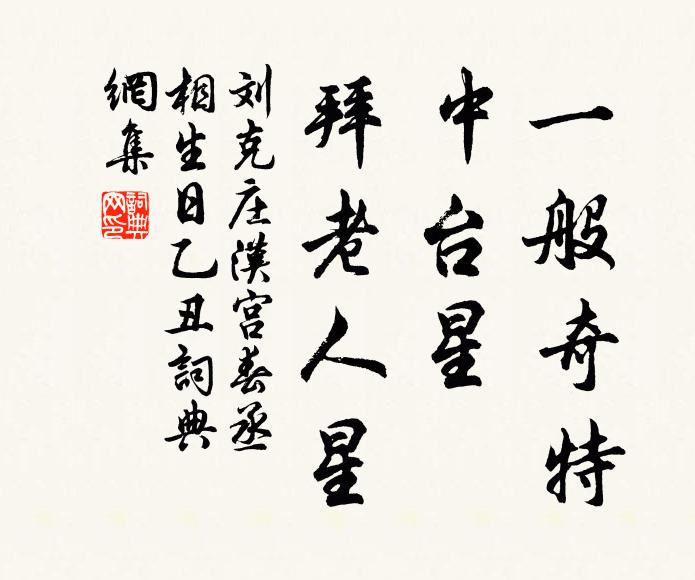 一般奇特
中台星
拜老人星
刘克庄漢宫春丞
相生日乙丑詞典
網集
詞典
网印